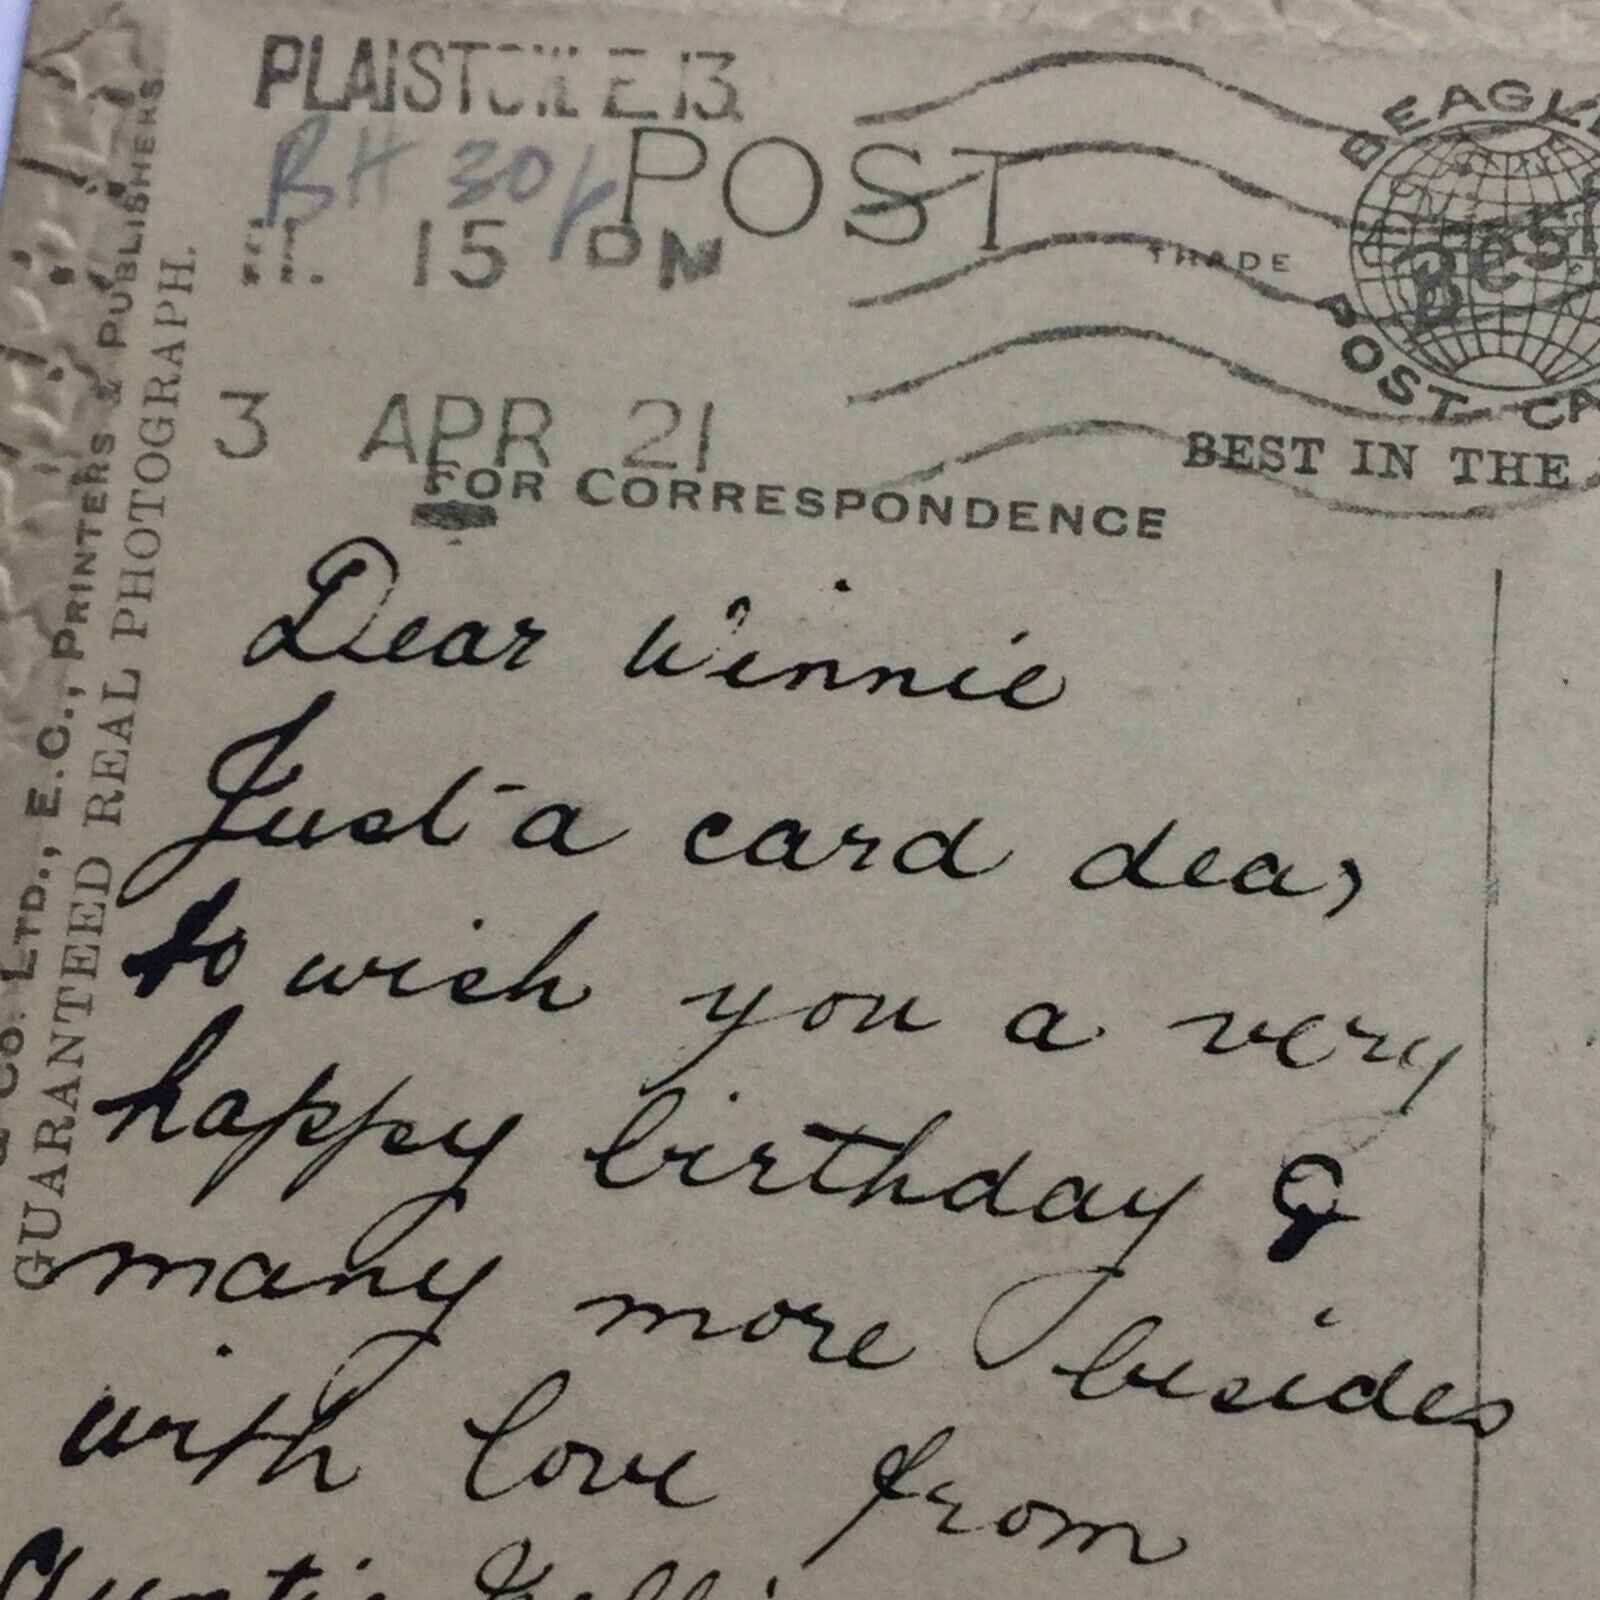 PLAISTOW. E.13.
BH 30/
15 PM
POST
3 APR 21
BEAGLE
Best
TRADE
POST
BEST IN THE
FOR CORRESPONDENCE
Dear Winnie
Just a card dear
to wish you a very
happy birthday &
many more besides
with love from
Auntie
CO. LTD., E.C., PRINTERS & PUBLISHERS
GUARANTEED REAL PHOTOGRAPH.